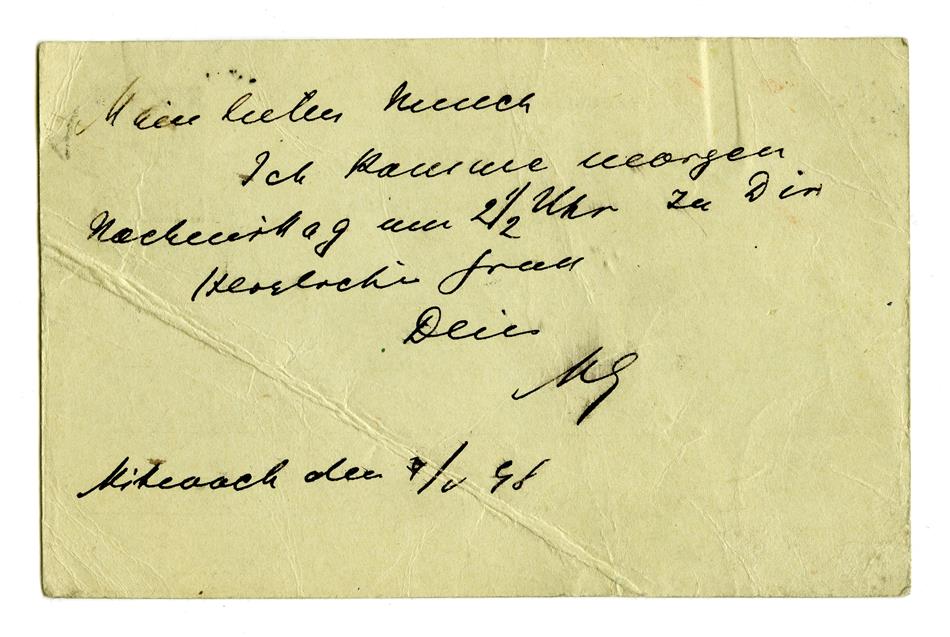 Mein lieber Munch
Ich komme morgen
Nachmittag um 2 1/2 Uhr zu Dir
Herzlichen Gruss
Dein
MG
Mittwoch den /V 98